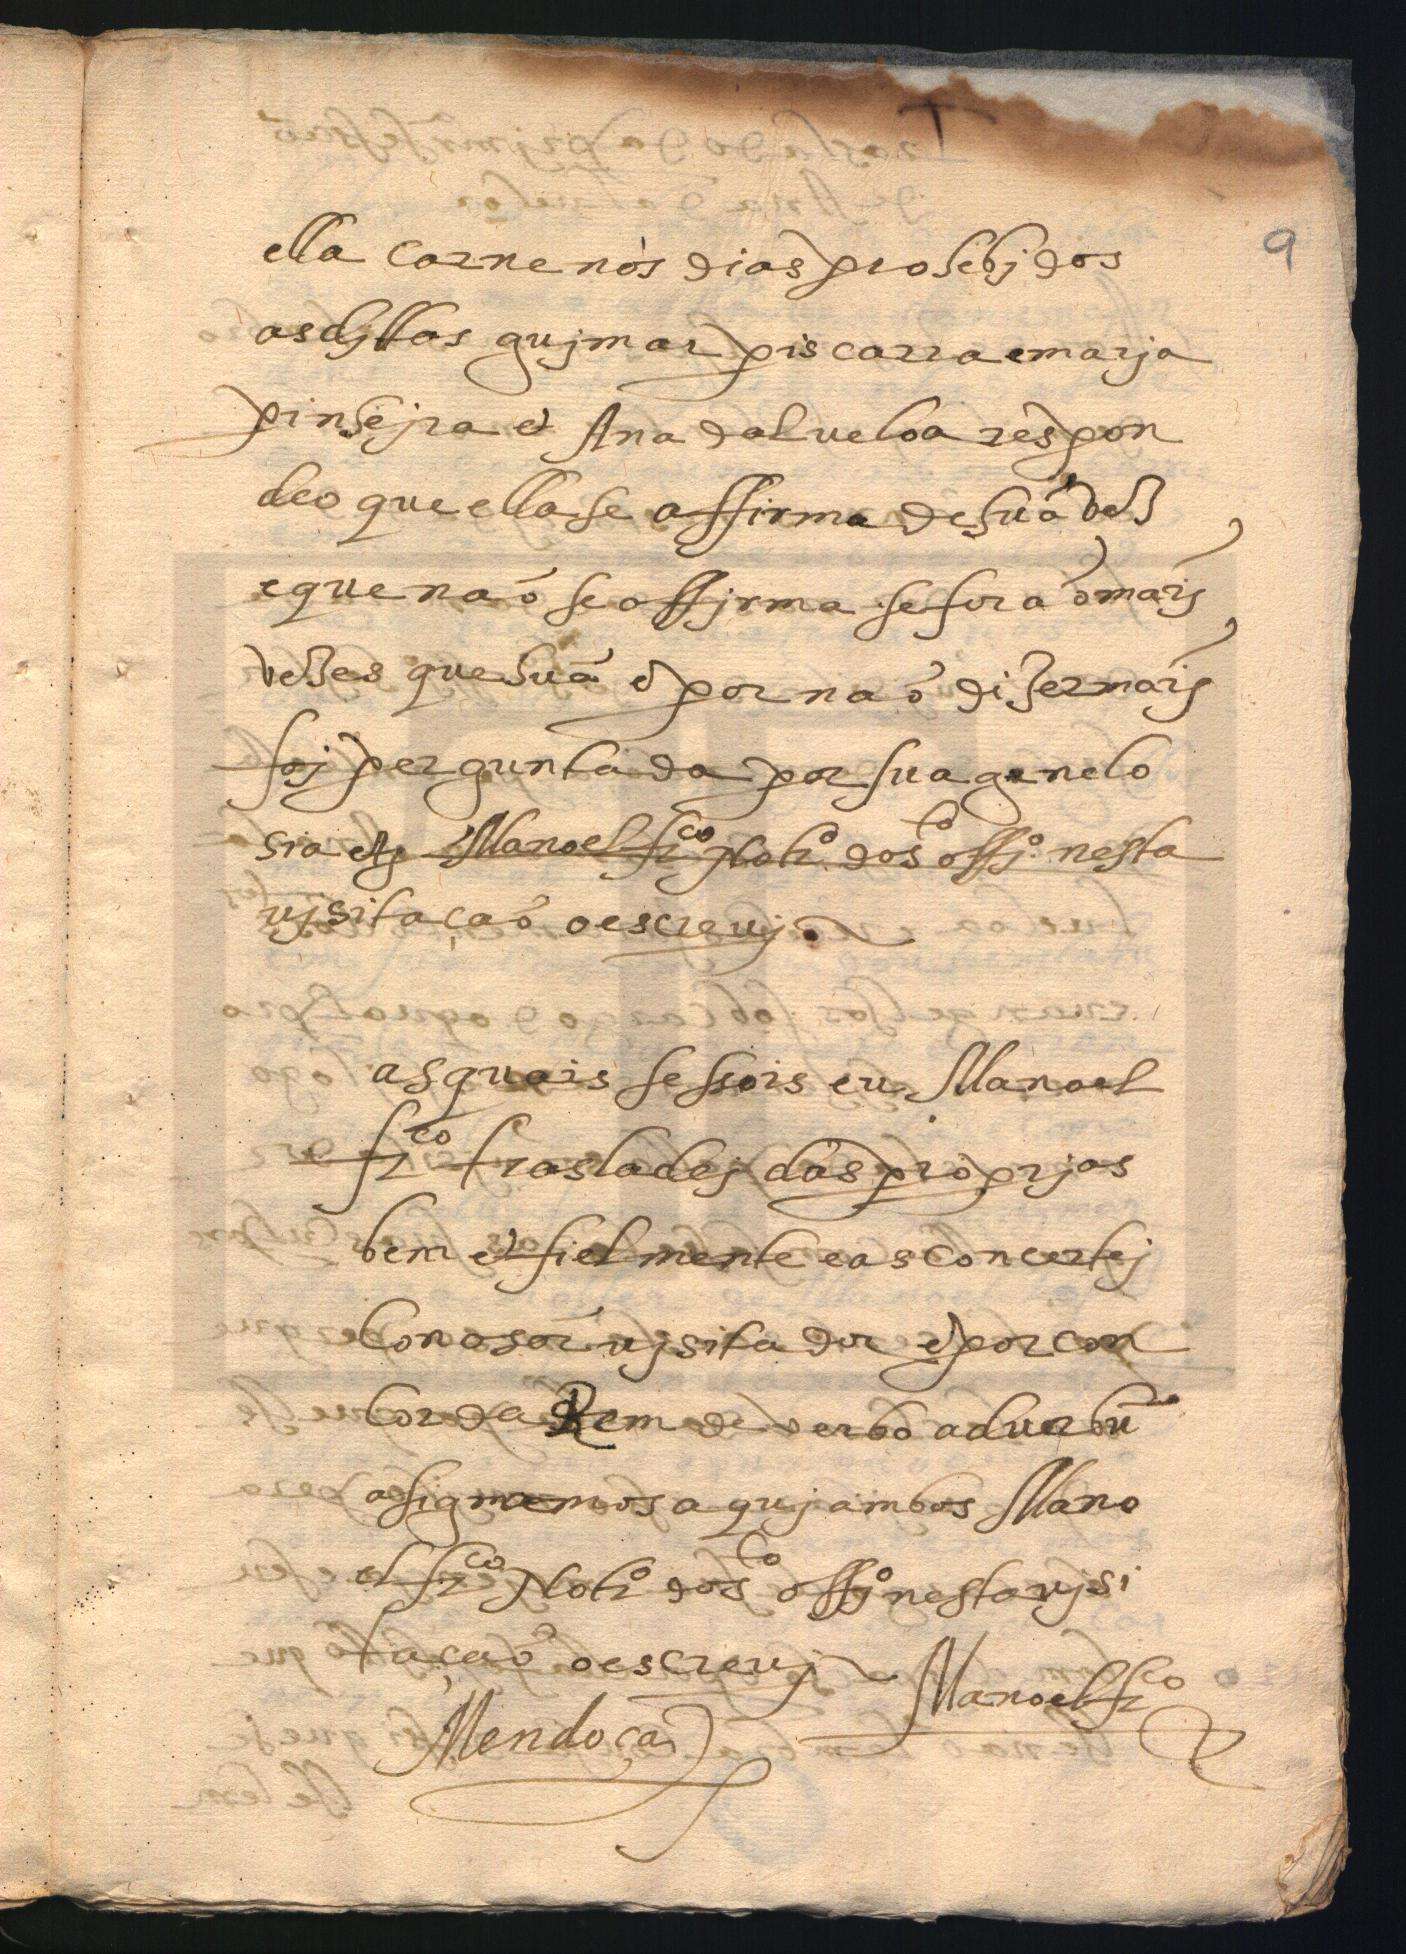 9
ella carne nos dias prohebjdos
as djttas gujmar piscarra e marja
pinhejra et Ana dalueloa respon
deo que ella se affirma de huã ves
e que naõ se affjrma se fora õ mais
veses que huã e por naõ diser mais
foj perguntada por sua genelo
sia Manoel frco notro do sto offjo nesta
vjsitaçaõ o escreuj
as quais sessois eu Manoel
frco trasladej das proprjas
bem et fielmente e as concertej
con o sor vjsitador e por con
cordarem de verbo aduerbũ
asignamos aquj ambos Mano
el frco notro do sto offjo nesta vjsi
taçaõ o escreuj
Manoel frco
Mendoça